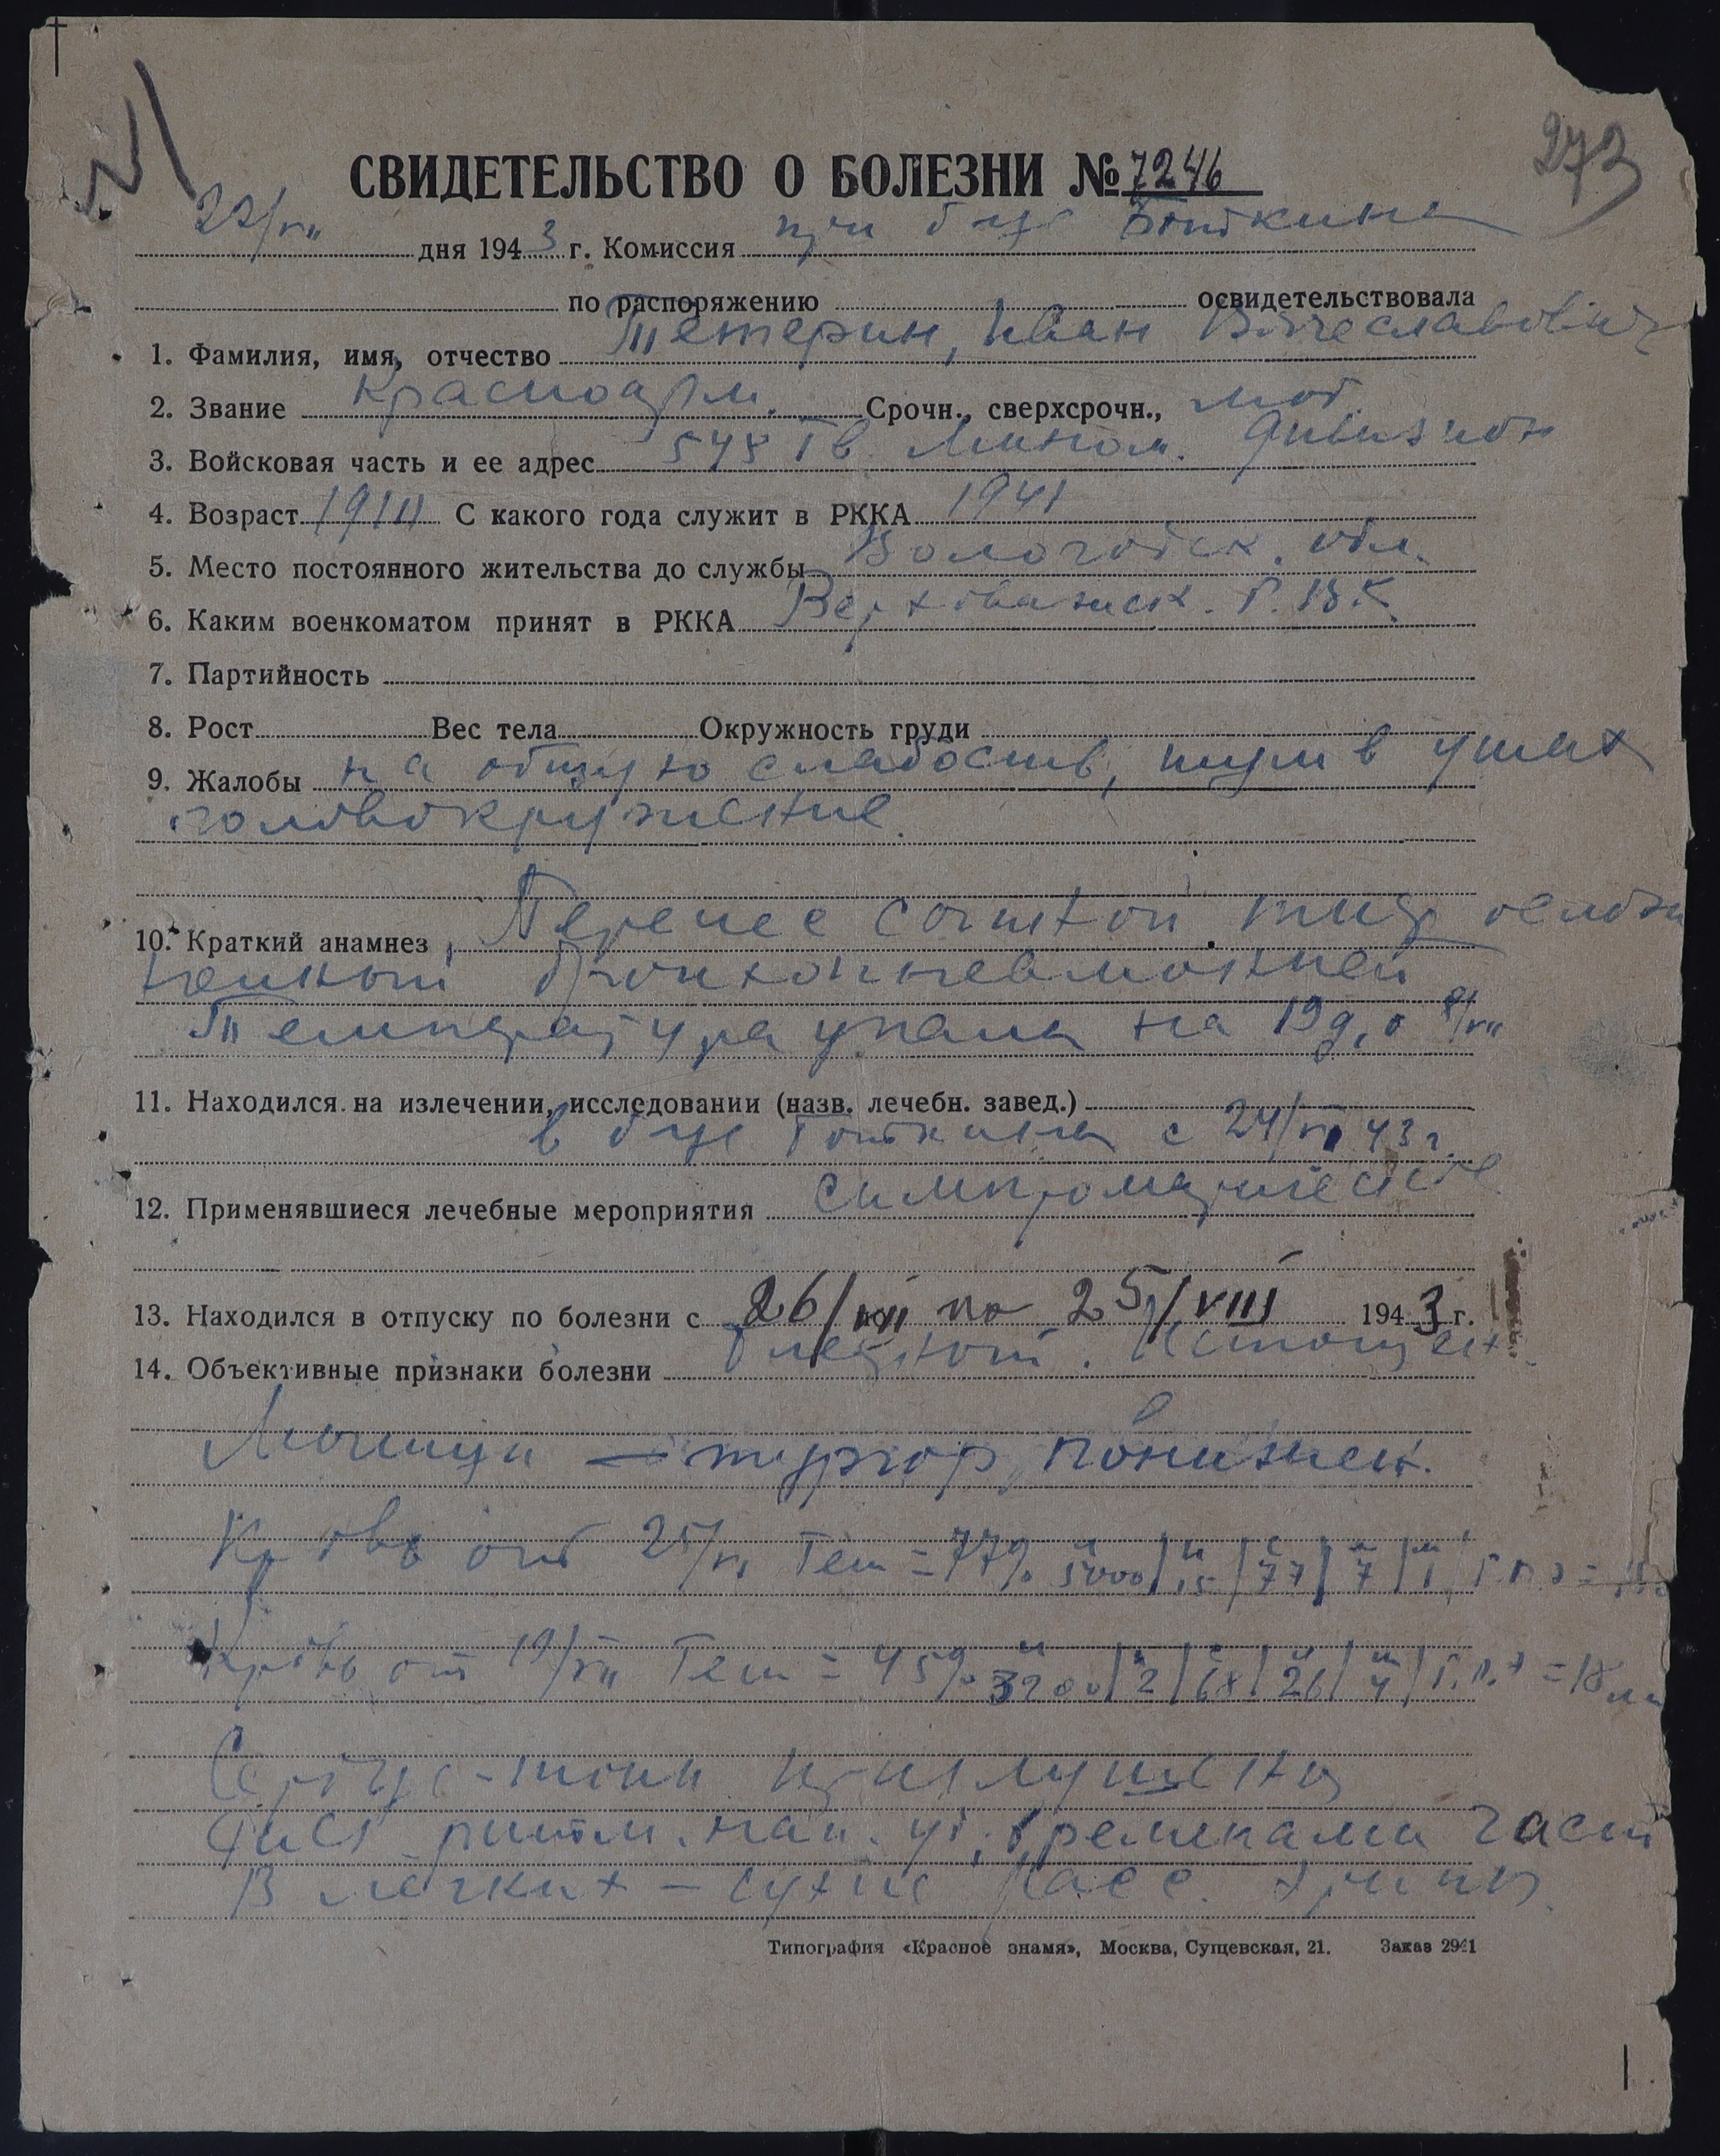 273
СВИДЕТЕЛЬСТВО О БОЛЕЗНИ № 7246
22/VII дня 1943 г. Комиссия при б-це Боткина
по распоряжению освидетельствовала
1. Фамилия, имя, отчество Тетерин, Иван Вячеславович
2. Звание красноарм. Срочн., сверхсрочн., моб.
3. Войсковая часть и ее адрес 548 Гв. Мином. дивизион
4. Возраст С какого года служит в РККА 1941
5. Место постоянного жительства до службы Вологодск. обл.
6. Каким военкоматом принят в РККА Верховажск. Р.В.К.
7. Партийность
8. Рост Вес тела Окружность груди
9. Жалобы на общую слабость, шум в ушах
головокружение.
10. Краткий анамнез Перенес сыпной тиф ослож
ненный бронхопневмонией
Температура упала на 19 д. 8/VII
11. Находился на излечении, исследовании (назв. лечебн. завед.)
в б-це Боткина с 24/VI 43 г.
12. Применявшиеся лечебные мероприятия симптоматические
13. Находился в отпуску по болезни с 26/VII по 25/VIII 1943 г.
14. Объективные признаки болезни бледный. Истощен.
Мышцы – тургор понижен.
Кровь от 25/VI Гем = 77% л 5000 | п 15 | с 77 | л 7 | м 1
Кровь от 19/VII Гем = 45% л 3200 | п 2 | с 68 | л 26 | м 4 | = 18 мм
Сердце - тоны приглушены
Пульс ритм. нап. уд. временами част
В легких – сухие расс. хрипы.
Типография «Красное знамя», Москва, Сущевская, 21. Заказ 2941